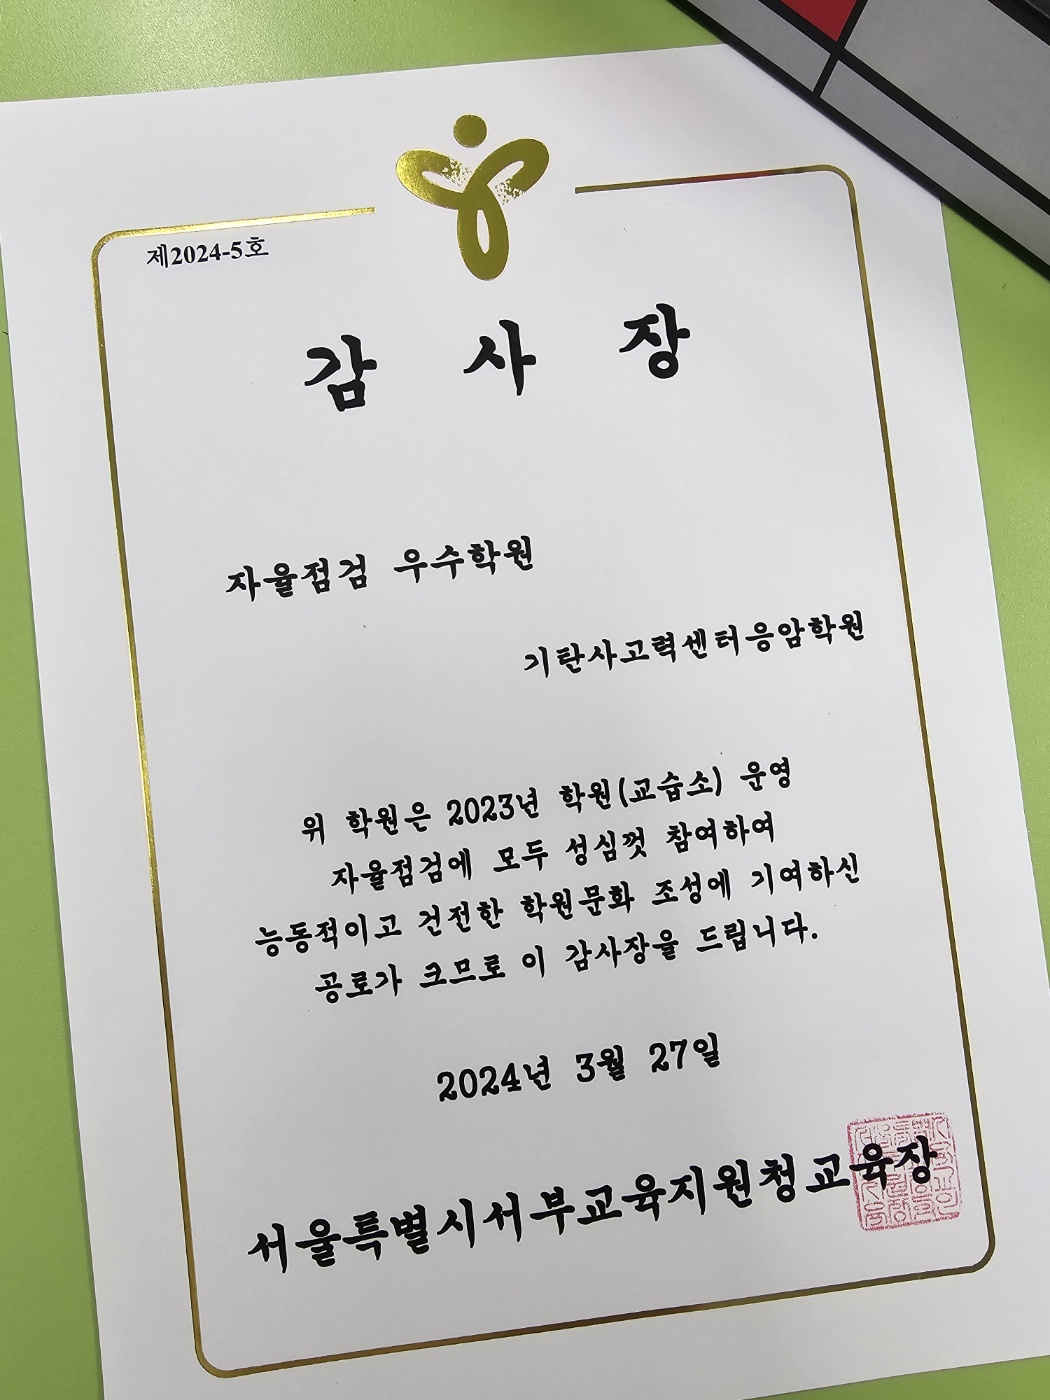 제2024-5호
감 사 장
자율점검 우수학원
기탄사고력센터응암학원
위 학원은 2023년 학원(교습소) 운영
자율점검에 모두 성심껏 참여하여
능동적이고 건전한 학원문화 조성에 기여하신
공로가 크므로 이 감사장을 드립니다.
2024년 3월 27일
서울특별시서부교육지원청교육장